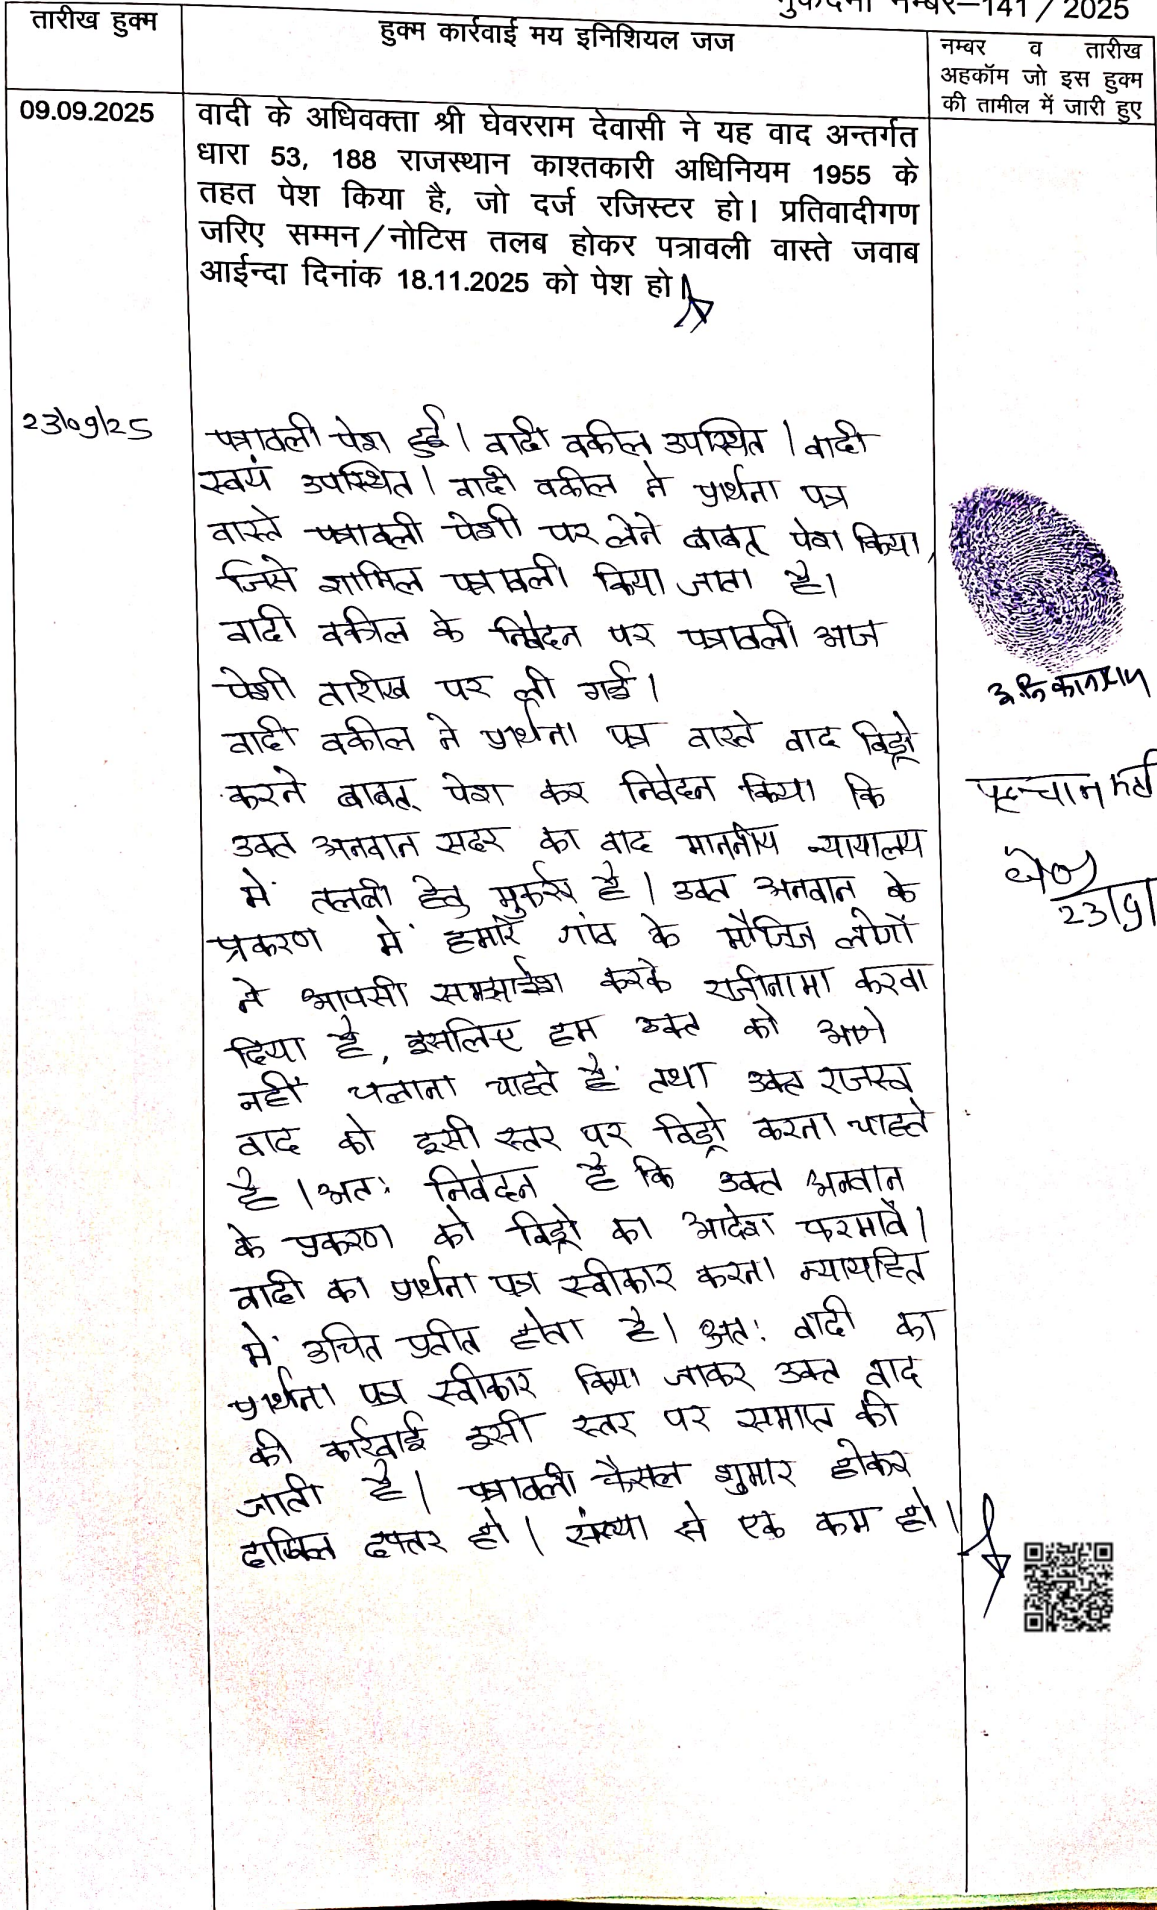 मुकदमा नम्बर–141 / 2025
तारीख हुक्म
हुक्म कार्रवाई मय इनिशियल जज
नम्बर व तारीख
अहकॉम जो इस हुक्म
की तामील में जारी हुए
09.09.2025
वादी के अधिवक्ता श्री घेवरराम देवासी ने यह वाद अन्तर्गत
धारा 53, 188 राजस्थान काश्तकारी अधिनियम 1955 के
तहत पेश किया है, जो दर्ज रजिस्टर हो। प्रतिवादीगण
जरिए सम्मन/नोटिस तलब होकर पत्रावली वास्ते जवाब
आईन्दा दिनांक 18.11.2025 को पेश हो।
23/09/25
पत्रावली पेश हुई। वादी वकील उपस्थित। वादी
स्वयं उपस्थित। वादी वकील ने प्रार्थना पत्र
वास्ते पत्रावली पेशी पर लेने बाबत् पेश किया,
जिसे शामिल पत्रावली किया जाता है।
वादी वकील के निवेदन पर पत्रावली आज
पेशी तारीख पर ली गई।
वादी वकील ने प्रार्थना पत्र वास्ते वाद विड्रो
करने बाबत् पेश कर निवेदन किया कि
उक्त अनवान सदर का वाद माननीय न्यायालय
में तलबी हेतु मुकर्रर है। उक्त अनवान के
प्रकरण में हमारे गांव के मौजिज लोगों
ने आपसी समझाईश करके राजीनामा करवा
दिया है, इसलिए हम उक्त को आगे
नहीं चलाना चाहते हैं तथा उक्त राजस्व
वाद को इसी स्तर पर विड्रो करना चाहते
है। अतः निवेदन है कि उक्त अनवान
के प्रकरण को विड्रो का आदेश फरमावें।
वादी का प्रार्थना पत्र स्वीकार करना न्यायहित
में उचित प्रतीत होता है। अतः वादी का
प्रार्थना पत्र स्वीकार किया जाकर उक्त वाद
की कार्रवाई इसी स्तर पर समाप्त की
जाती है। पत्रावली फैसल शुमार होकर
दाखिल दफ्तर हो। संख्या से एक कम हो।
पहचानकर्ता
23/9/